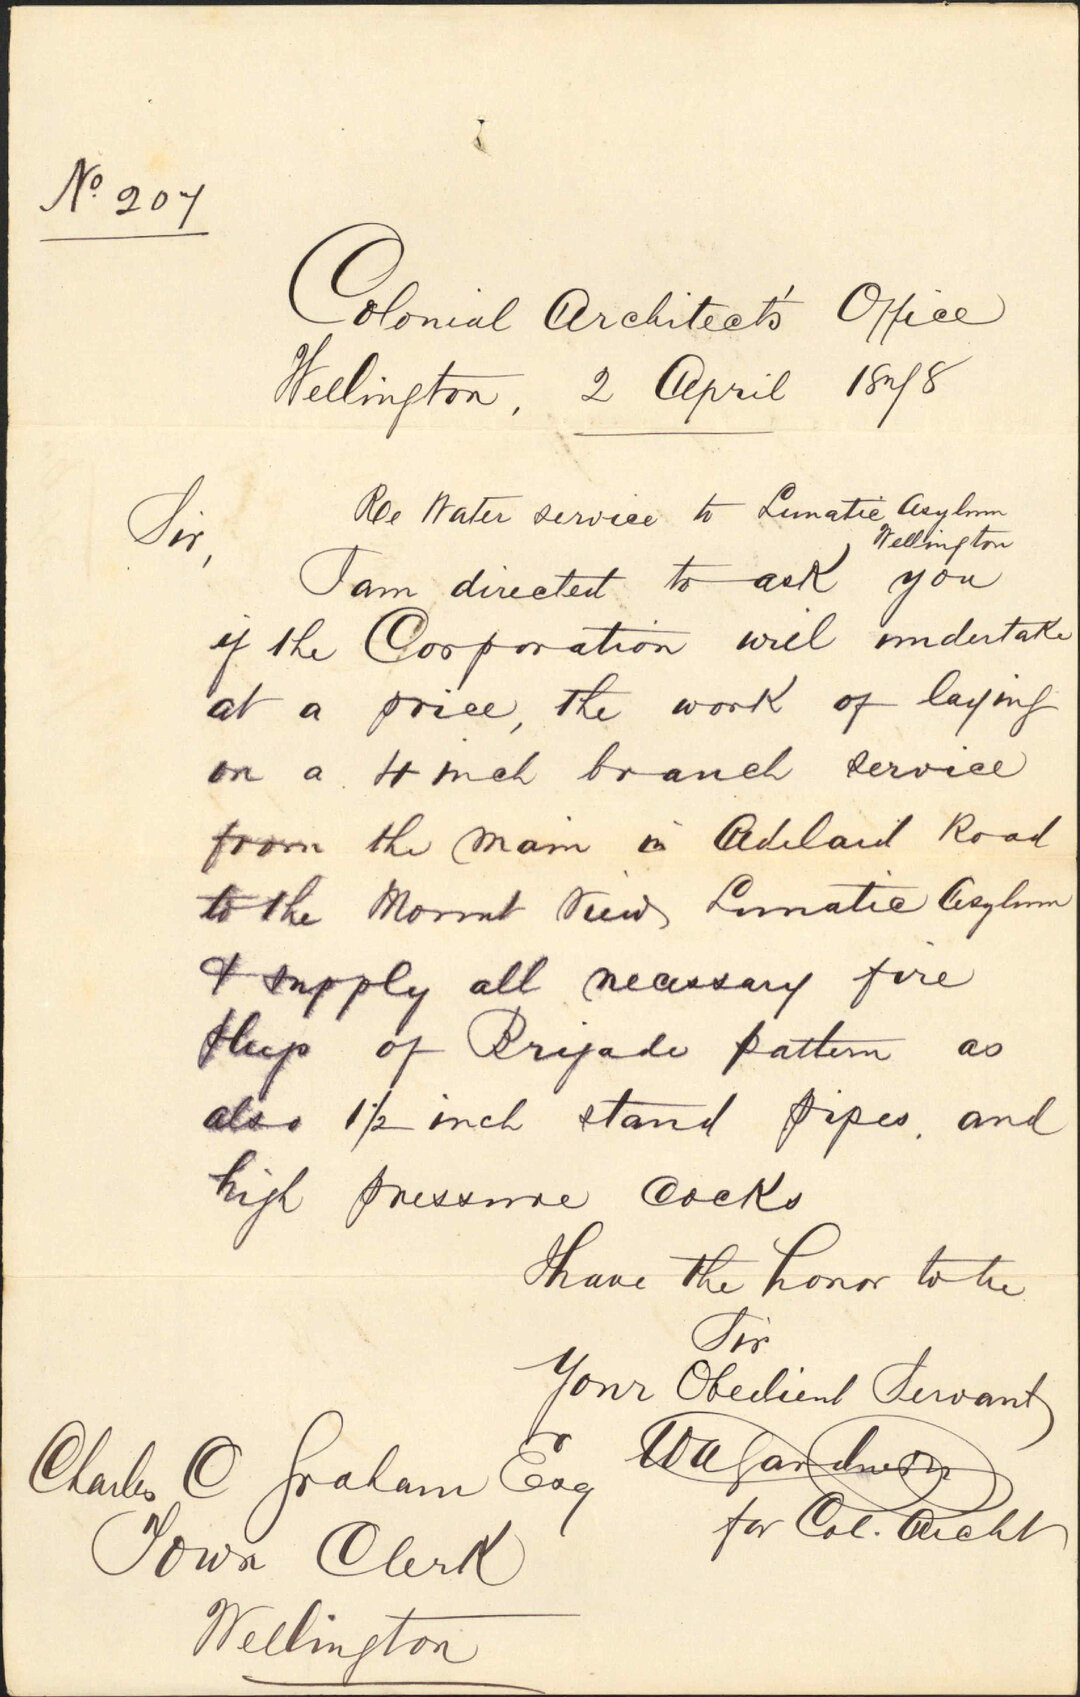 No. 207
Colonial Architect's Office
Wellington, 2 April 1878
Re Water service to Lunatic Asylum
Wellington
Sir,
I am directed to ask you
if the Corporation will undertake
at a price, the work of laying
on a 4 inch branch service
from the main in Adelaid Road
to the Mount View Lunatic Asylum
& supply all necessary fire
of Brigade pattern as
also 1 1/2 inch stand pipes, and
high pressure cocks
I have the honor to be
Sir
Your Obedient Servant
for Col. Archt
Charles C Graham Esqr
Town Clerk
Wellington